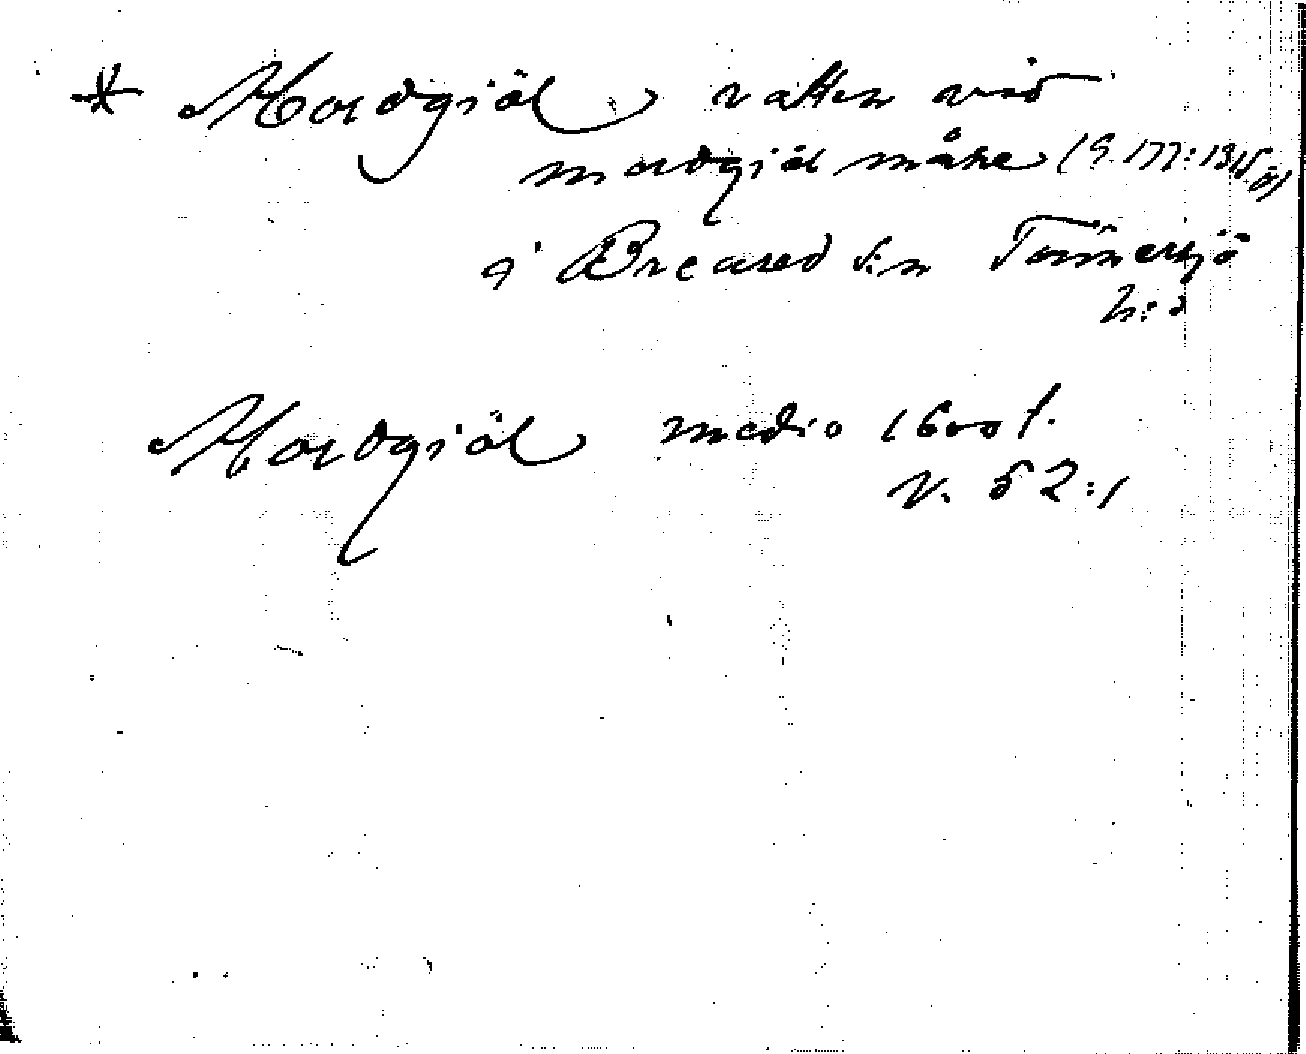 * Mordgiöl vatten vid
mordgiöl måse (S. 177:1315
i Breared s:n Tönnersjö
h:d
Mordgiöl medio 1600 t.
V. 52:1